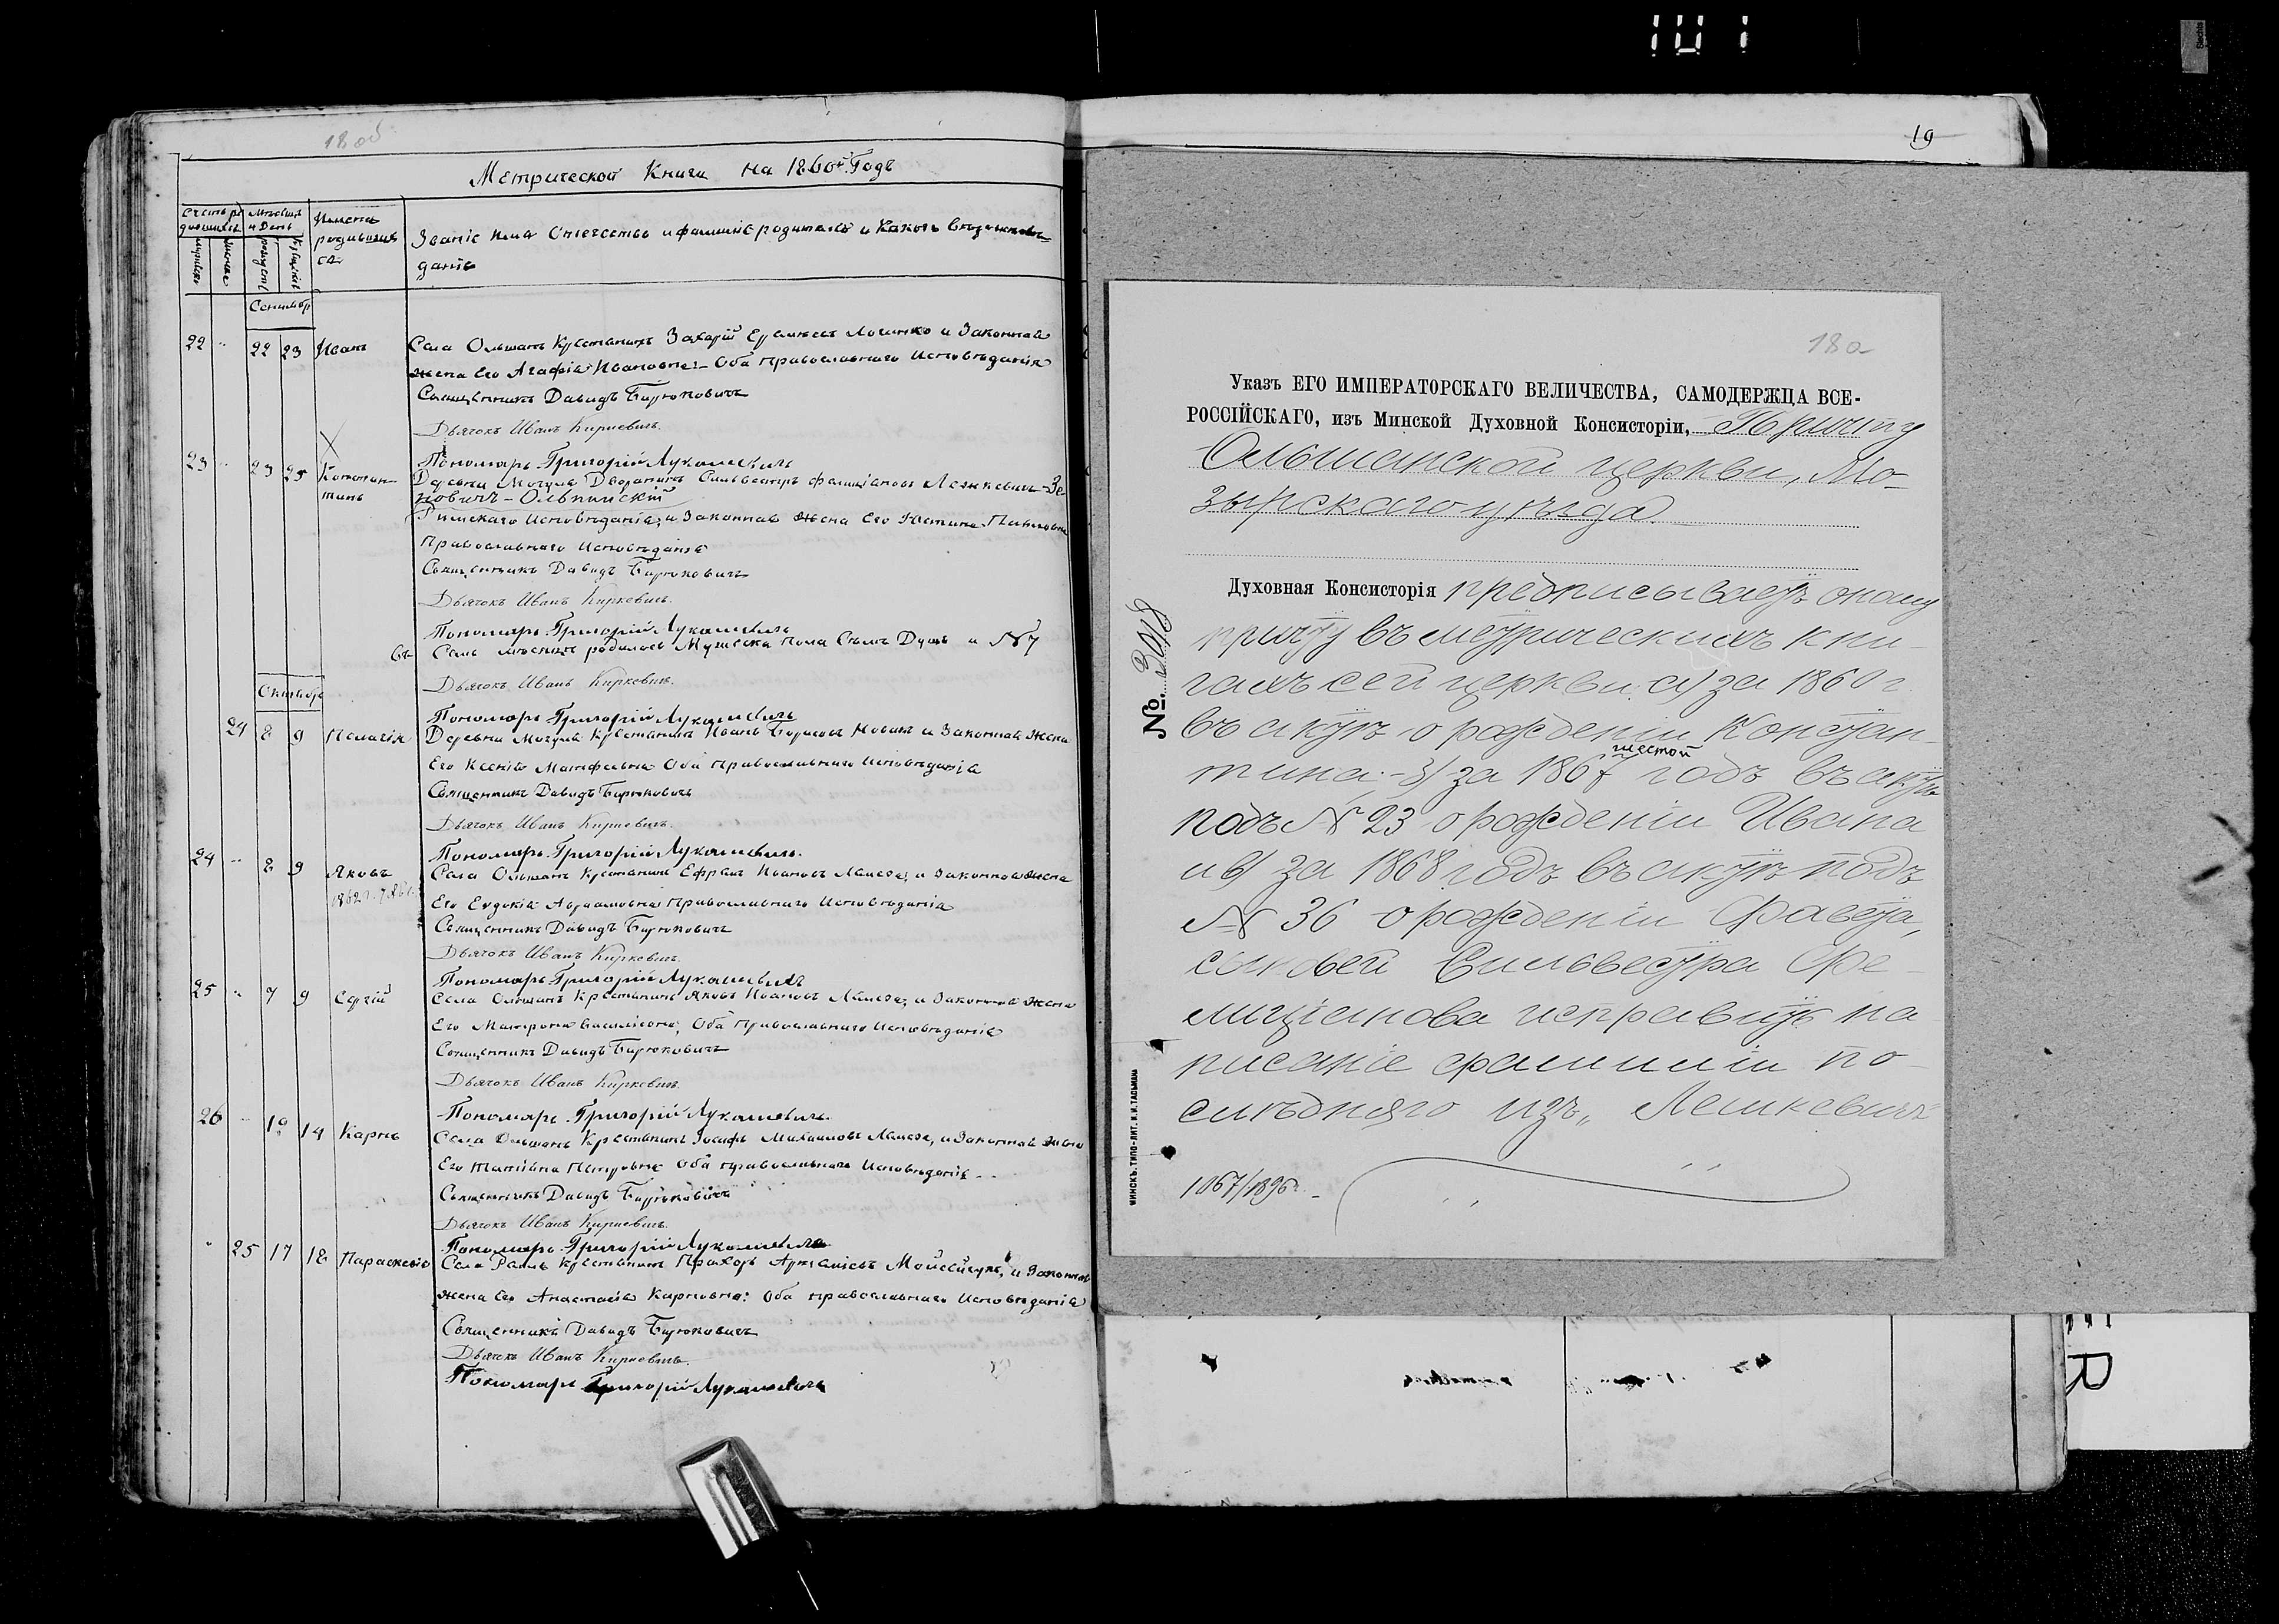 101
18 об
Метрической Книги на 1860й Годъ
Счетъ родившихся
Месяцъ и День
Имена родившихся
Званіе имя Отечество и фамилие родителей и Какого вероисповедание
мужеска
женска
рожденія
крещенія
Сентябр
22 22 23 Иванъ Села Ольшанъ Крестьянинъ Захарій и Законная
жена Его Агафія Ивановна Оба православнаго Исповѣданія
Священникъ Давидъ Бирюковичъ
Дьячокъ Иванъ Киркевичъ.
Пономарь Григорій Лукашевичъ
23 23 25 Констан-
тинъ
Деревни Могуля Дворянинъ Сильвестръ Фелиціановъ Ленкевичъ-Зе-
новичъ-Ольпинскій
Римскаго Исповѣданія, и Законная жена Его Юстина
Православнаго Исповѣданія
Священникъ Давидъ Бирюковичъ
Дьячокъ Иванъ Киркевичъ.
Пономарь Григорій Лукашевичъ
Семь родилось Мужеска Пола Семь Душъ и №7
Дьячокъ Иванъ Киркевичъ.
Октябр
Пономарь Григорій Лукашевичъ
24 8 9 Пелагія Деревни Могуля Крестьянинъ Иванъ Борисовъ Новикъ и Законная жена
Его Ксенія Матфеевна Оба православнаго Исповѣданія
Священникъ Давидъ Бирюковичъ
Дьячокъ Иванъ Киркевичъ.
Пономарь Григорій Лукашевичъ.
24 8 9 Яковъ Села Ольшанъ Крестьянинъ Ефремъ Ивановъ Ламеза, и Законная жена
Его Евдокія Абрамовна православнаго Исповѣданія
Священникъ Давидъ Бирюковичъ
Дьячокъ Иванъ Киркевичъ.
Пономарь Григорій Лукашевичъ
25 7 9 Сергій Села Ольшанъ Крестьянинъ Яковъ Ивановъ Ламеза, и Законная жена
Его Матрона Василіевна, Оба православнаго Исповѣданія
Священникъ Давидъ Бирюковичъ
Дьячокъ Иванъ Киркевичъ.
Пономарь Григорій Лукашевичъ.
26 12 14 Карпъ Села Ольшанъ Крестьянинъ Іосифъ Михаиловъ Ламеза, и Законная жена
Его Татіана Петровна Оба православнаго Исповѣданія
Священникъ Давидъ Бирюковичъ
Дьячокъ Иванъ Киркевичъ.
Пономарь Григорій Лукашевичъ
25 17 18 Параскевія Села Крестьянинъ Прохоръ Мойсейчукъ, и Законная
жена Его Анастасія Карповна: Оба православнаго Исповѣданія
Священникъ Давидъ Бирюковичъ
Дьячокъ Иванъ Киркевичъ.
Пономарь Григорій Лукашевичъ
19
18а
Указъ ЕГО ИМПЕРАТОРСКАГО ВЕЛИЧЕСТВА, САМОДЕРЖЦА ВСЕ-
РОССІЙСКАГО, изъ Минской Духовной Консисторіи, Причту
Ольшанской церкви, Мо-
зырскаго уѣзда
Духовная Консисторія предписываетъ оному
причту въ метрическихъ кни-
гахъ сей церкви: а) за 1860 г.
въ актѣ о рожденіи Констан-
тина - б) за 1867 шестой годъ въ актѣ
подъ № 23 о рожденіи Ивана
и в) за 1868 годъ въ актѣ подъ
№ 36 о рожденіи Фавста,
сыновей Сильвестра Фе-
лиціанова исправить на-
писаніе фамиліи по-
слѣдняго изъ „Лешкевичъ
1067/1896г.
№ 3018
МИНСКЪ. ТИПО-ЛИТ. И. И. ТАСЬМАНА
R